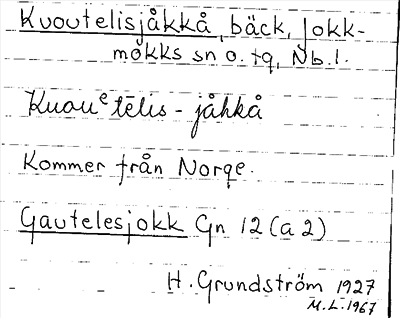 Kuoutelisjåkkå, bäck, Jokk-
mokks sn o. tg, Nb. l.
Kuouᵉtēlis-jåhkå
Kommer från Norge.
Gautelesjokk Gn 12 (a 2)
H. Grundström 1927
M. L. 1967